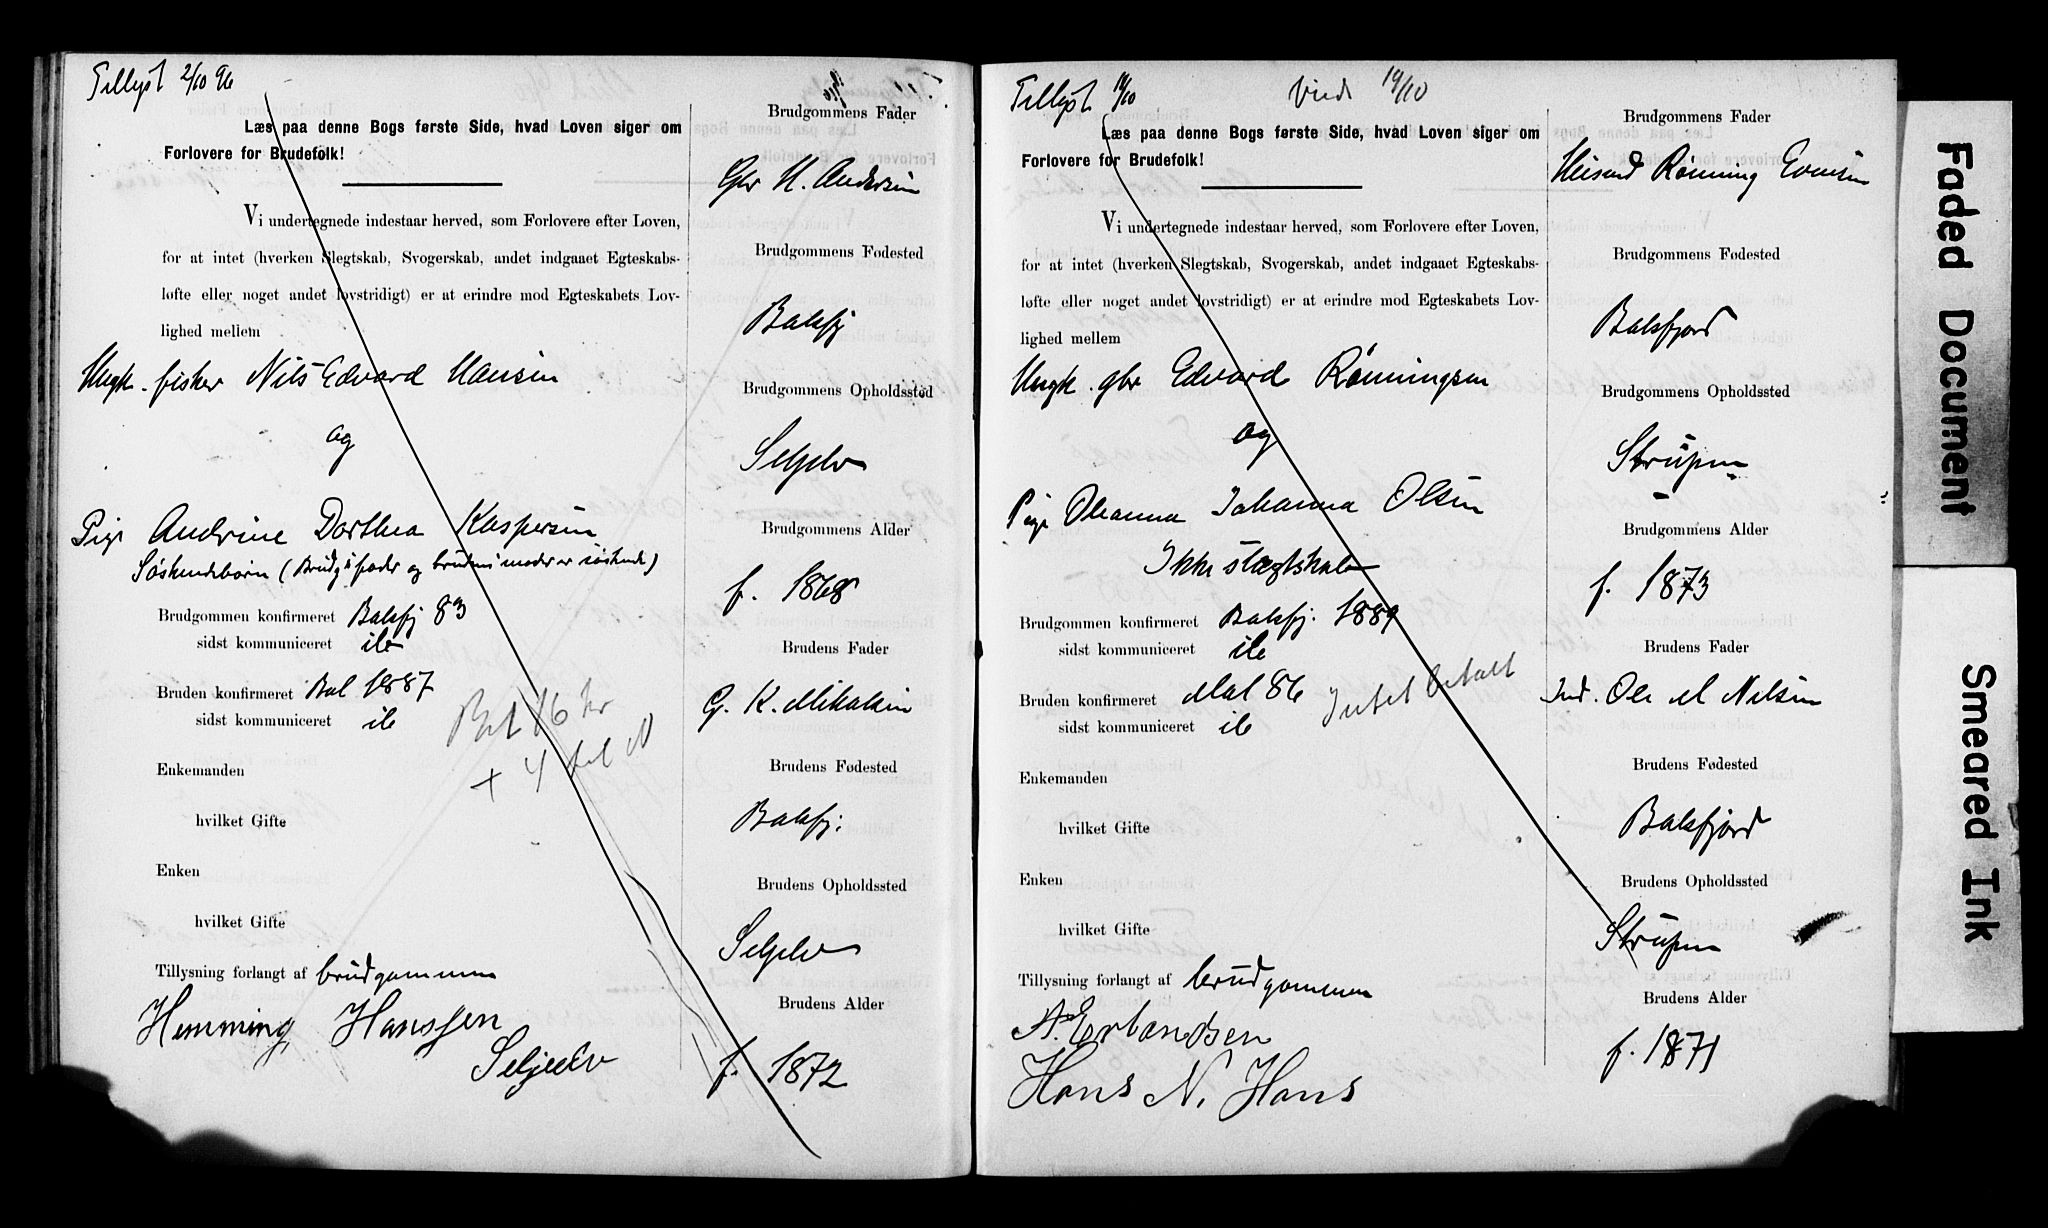 Tillyst 2/10 96
Læs paa denne Bogs første Side, hvad Loven siger om
Forlovere for Brudefolk!
Vi undertegnede indestaar herved, som Forlovere efter Loven,
for at intet (hverken Slegtskab, Svogerskab, andet indgaaet Egteskabs-
løfte eller noget andet lovstridigt) er at erindre mod Egteskabets Lov-
lighed mellem
Ungk. fisker Nils Edvard Hansen
og
Pige Andrine Dorthea Kaspersen
Søskendebørn (Brudg's fader og brudens moder er søskende)
Brudgommen konfirmeret Balsfj 83
sidst kommuniceret
Bruden konfirmeret Bal 1887
sidst kommuniceret
Bet 16 kr
+ 4 til N
Enkemanden
hvilket Gifte
Enken
hvilket Gifte
Tillysning forlangt af brudgommen
Hemming Hanssen
Seljeelv
Brudgommens Fader
Gbr H. Andersen
Brudgommens Fødested
Balsfj
Brudgommens Opholdssted
Seljelv
Brudgommens Alder
f. 1868
Brudens Fader
G. K. Mikalsen
Brudens Fødested
Balsfj.
Brudens Opholdssted
Seljelv
Brudens Alder
f. 1872
Tillyst 11/10 Viede 19/10
Læs paa denne Bogs første Side, hvad Loven siger om
Forlovere for Brudefolk!
Vi undertegnede indestaar herved, som Forlovere efter Loven,
for at intet (hverken Slegtskab, Svogerskab, andet indgaaet Egteskabs-
løfte eller noget andet lovstridigt) er at erindre mod Egteskabets Lov-
lighed mellem
Ungk. gbr Edvard Rønningsen
og
Pige Oleanna Johanna Olsen
Ikke slægtskab
Brudgommen konfirmeret Balsfj. 1889
sidst kommuniceret
Bruden konfirmeret Mal 86
sidst kommuniceret
Intet betalt
Enkemanden
hvilket Gifte
Enken
hvilket Gifte
Tillysning forlangt af brudgommen
A. Erlandsen
Hans N. Hans
Brudgommens Fader
Husmd Rønning Evensen
Brudgommens Fødested
Balsfjord
Brudgommens Opholdssted
Strupen
Brudgommens Alder
f. 1873
Brudens Fader
Ind. Ole M Nilsen
Brudens Fødested
Balsfjord
Brudens Opholdssted
Strupen
Brudens Alder
f. 1871
Faded Document
Smeared Ink